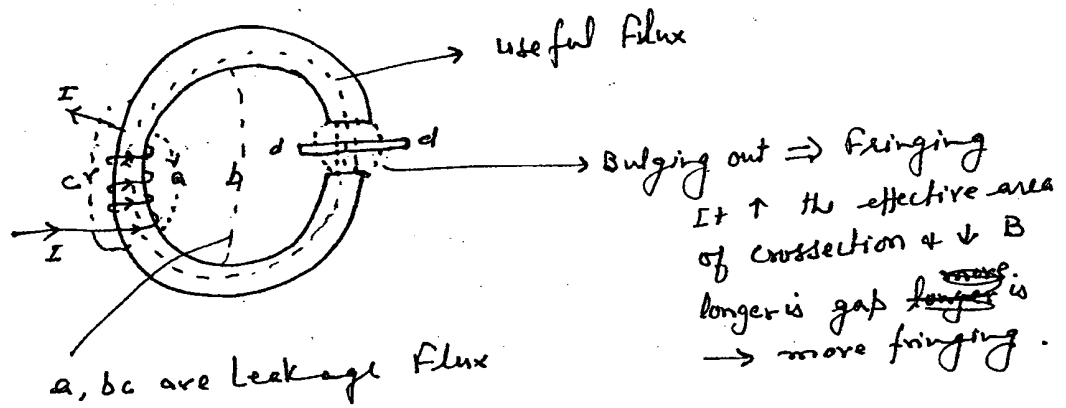 useful Flux
I
d d
c a b
I
Bulging out ⇒ Fringing
It ↑ the effective area
of crossection & ↓ B
longer is gap longer more is
→ more fringing.
a, bc are Leakage Flux